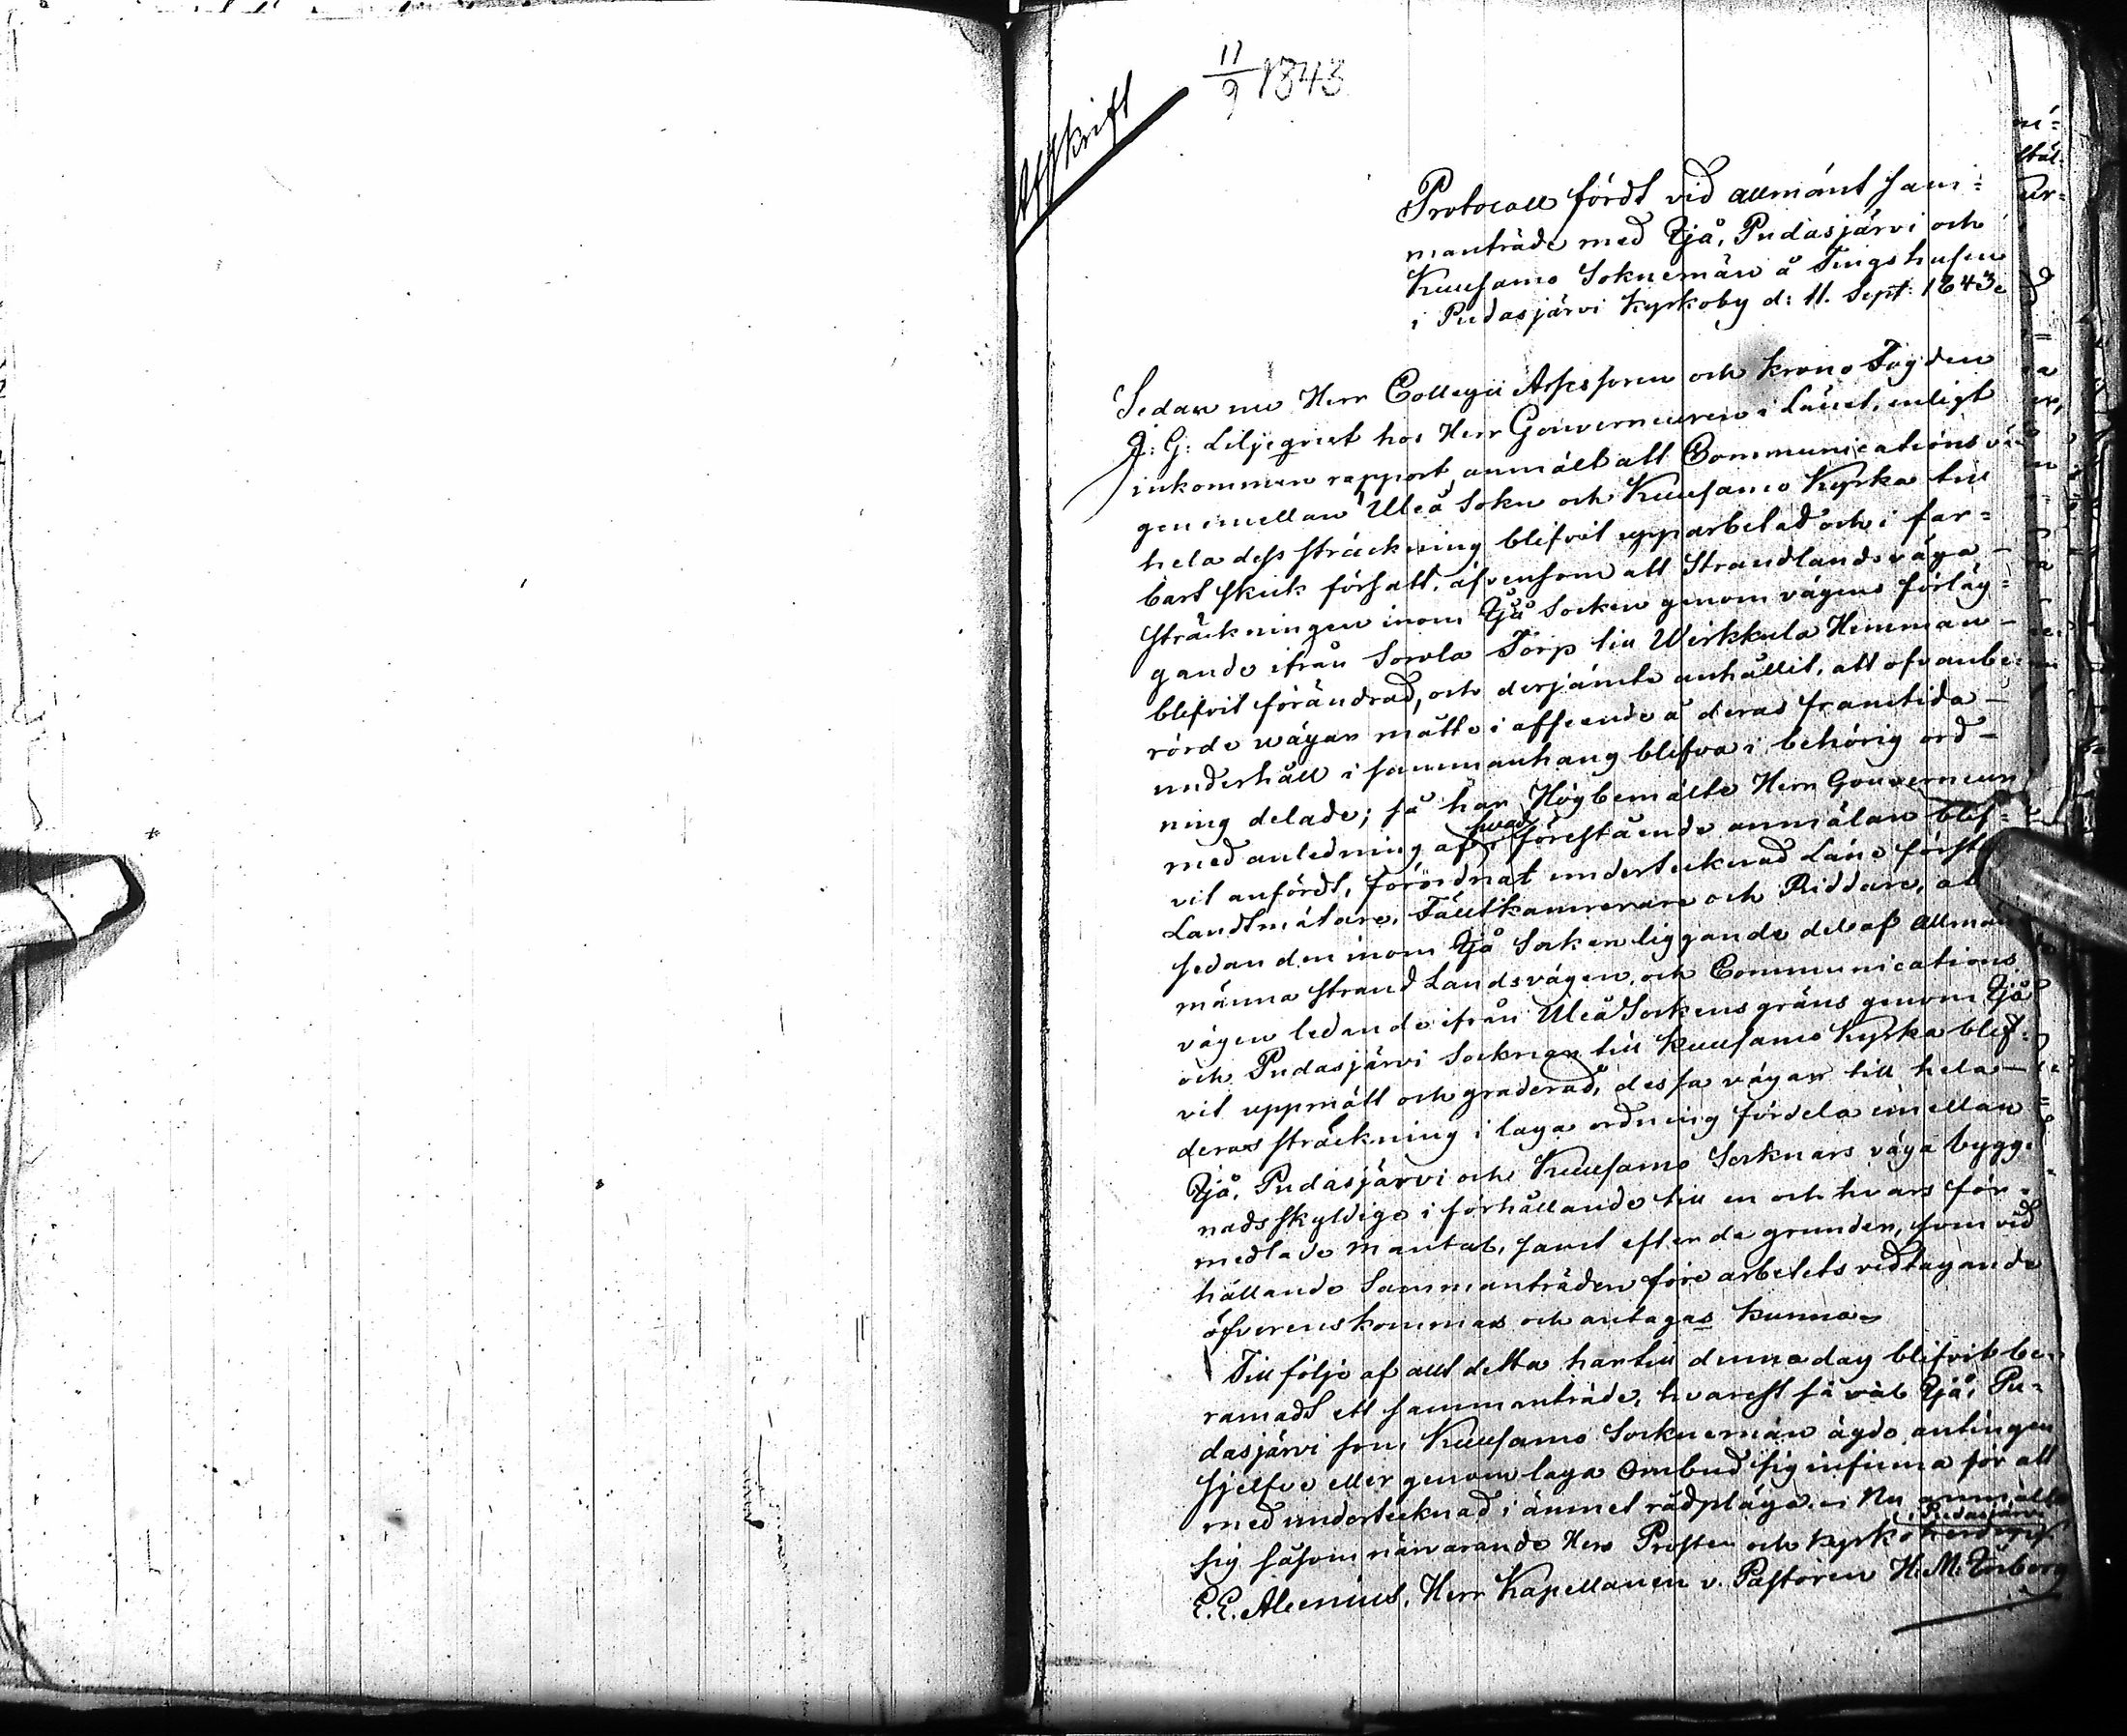 11/9 1843
Afskrift
Protocoll fördt vid allmänt sam=
manträde med Ijå, Pudasjärvi och
Kuusamo Soknemän å Tingshusen
i Pudasjärvi Kyrkoby d: 11. Sept: 1843.
Sedan nu Herr Collegii Assessoren och Krono Fogden
J: G: Liljeqvist hos Herr Gouverneuren i Länet, enligt
inkommen rapport, anmält att Communications vä=
gen emellan Uleå Sokn och Kuusamo Kyrka till
hela dess sträckning blifvit upparbetad och i far=
bart skick försatt, äfvensom att Strandlandsväga-
sträckningen inom Ijå Socken genom vägens förläg=
gande ifrån Sorvla Torp till Wirkkula Hemman-
blifvit förändrad, och derjämte anhållit, att ofvanbe=
rörde vägar måtte i afseende å deras framtida-
underhåll i sammanhang blifva i behörig ord-
ning delade; så har Högbemälte Herr Gouverneur
med anledning af hvad i förestående anmälan blif=
vit anfördt, förordnat undertecknad Läne förste
Landtmätare, Fältkamrerare och Riddare, att
sedan den inom Ijå Socken liggande del af Allmän
männa Strand Landsvägen, och Communications
vägen ledande ifrån Uleå Sockens gräns genom Ijå
och Pudasjärvi Socknar till Kuusamo Kyrka blif=
vit uppmätt och graderad, dessa vägar till hela-
deras sträckning i laga ordning fördela emellan
Ijå, Pudasjärvi och Kuusamo Socknars väga bygg=
nadsskyldige i förhållande till en och hvars för=
medlade mantal, samt efter de grunder, som vid
hållande Sammanträden före arbetets vidtagande
öfverenskommas och antagas kunna.
Till följe af allt detta har till denna dag blifvit be=
ramadt ett sammanträde, hvarest så väl Ijå, Pu=
dasjärvi som Kuusamo Socknemän ägde antingen
sjelfve eller genom laga Ombud sig infinna för att
med undertecknad i ämnet rådpläga. Nu anmälte
sig såsom närvarande Herr Prosten och Kyrkoherden i Pudasjärvi
E. E. Alcenius, Herr Kapellanen v. Pastoren H. M.